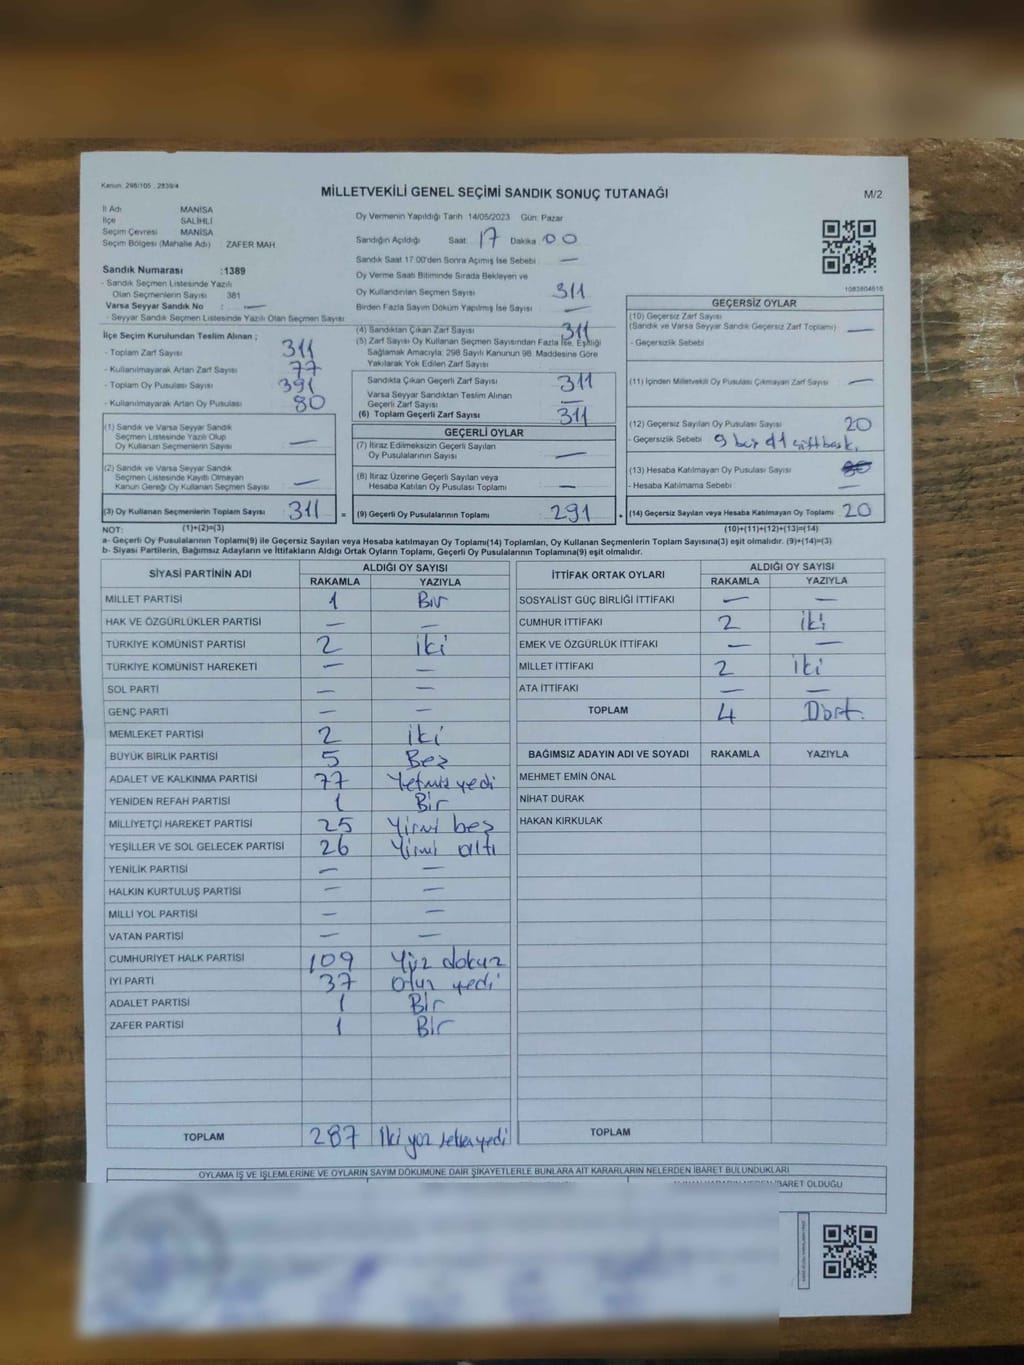 Kanun: 298/105 , 2839/4
MİLLETVEKİLİ GENEL SEÇİMİ SANDIK SONUÇ TUTANAĞI
M/2
İl Adı MANİSA
İlçe SALİHLİ
Seçim Çevresi MANİSA
Seçim Bölgesi (Mahalle Adı) : ZAFER MAH.
Sandık Numarası :1389
- Sandık Seçmen Listesinde Yazılı
Olan Seçmenlerin Sayısı 381
Varsa Seyyar Sandık No : —
- Seyyar Sandık Seçmen Listesinde Yazılı Olan Seçmen Sayısı
İlçe Seçim Kurulundan Teslim Alınan ;
- Toplam Zarf Sayısı 311
- Kullanılmayarak Artan Zarf Sayısı 77
- Toplam Oy Pusulası Sayısı 391
- Kullanılmayarak Artan Oy Pusulası 80
(1) Sandık ve Varsa Seyyar Sandık
Seçmen Listesinde Yazılı Olup
Oy Kullanan Seçmenlerin Sayısı —
(2) Sandık ve Varsa Seyyar Sandık
Seçmen Listesinde Kayıtlı Olmayan
Kanun Gereği Oy Kullanan Seçmen Sayısı —
(3) Oy Kullanan Seçmenlerin Toplam Sayısı 311 =
Oy Vermenin Yapıldığı Tarih 14/05/2023 Gün: Pazar
Sandığın Açıldığı Saat: 17 Dakika: 00
Sandık Saat 17:00'den Sonra Açılmış İse Sebebi —
Oy Verme Saati Bitiminde Sırada Bekleyen ve
Oy Kullandırılan Seçmen Sayısı 311
Birden Fazla Sayım Döküm Yapılmış İse Sayısı —
(4) Sandıktan Çıkan Zarf Sayısı 311
(5) Zarf Sayısı Oy Kullanan Seçmen Sayısından Fazla İse, Eşitliği
Sağlamak Amacıyla; 298 Sayılı Kanunun 98. Maddesine Göre
Yakılarak Yok Edilen Zarf Sayısı
Sandıkta Çıkan Geçerli Zarf Sayısı 311
Varsa Seyyar Sandıktan Teslim Alınan
Geçerli Zarf Sayısı —
(6) Toplam Geçerli Zarf Sayısı 311
GEÇERLİ OYLAR
(7) İtiraz Edilmeksizin Geçerli Sayılan
Oy Pusulalarının Sayısı —
(8) İtiraz Üzerine Geçerli Sayılan veya
Hesaba Katılan Oy Pusulası Toplamı —
(9) Geçerli Oy Pusulalarının Toplamı 291 +
1083804616
GEÇERSİZ OYLAR
(10) Geçersiz Zarf Sayısı
(Sandık ve Varsa Seyyar Sandık Geçersiz Zarf Toplamı) —
- Geçersizlik Sebebi
(11) İçinden Milletvekili Oy Pusulası Çıkmayan Zarf Sayısı —
(12) Geçersiz Sayılan Oy Pusulası Sayısı 20
- Geçersizlik Sebebi
(13) Hesaba Katılmayan Oy Pusulası Sayısı
- Hesaba Katılmama Sebebi —
(14) Geçersiz Sayılan veya Hesaba Katılmayan Oy Toplamı 20
NOT: (1)+(2)=(3) (10)+(11)+(12)+(13)=(14)
a- Geçerli Oy Pusulalarının Toplamı(9) ile Geçersiz Sayılan veya Hesaba katılmayan Oy Toplamı(14) Toplamları, Oy Kullanan Seçmenlerin Toplam Sayısına(3) eşit olmalıdır. (9)+(14)=(3)
b- Siyasi Partilerin, Bağımsız Adayların ve İttifakların Aldığı Ortak Oyların Toplamı, Geçerli Oy Pusulalarının Toplamına(9) eşit olmalıdır.
SİYASİ PARTİNİN ADI ALDIĞI OY SAYISI
RAKAMLA YAZIYLA
MİLLET PARTİSİ 1 Bir
HAK VE ÖZGÜRLÜKLER PARTİSİ — —
TÜRKİYE KOMÜNİST PARTİSİ 2 iki
TÜRKİYE KOMÜNİST HAREKETİ — —
SOL PARTİ — —
GENÇ PARTİ — —
MEMLEKET PARTİSİ 2 iki
BÜYÜK BİRLİK PARTİSİ 5 Beş
ADALET VE KALKINMA PARTİSİ 77 Yetmiş yedi
YENİDEN REFAH PARTİSİ 1 Bir
MİLLİYETÇİ HAREKET PARTİSİ 25 Yirmi beş
YEŞİLLER VE SOL GELECEK PARTİSİ 26 Yirmi altı
YENİLİK PARTİSİ — —
HALKIN KURTULUŞ PARTİSİ — —
MİLLİ YOL PARTİSİ — —
VATAN PARTİSİ — —
CUMHURİYET HALK PARTİSİ 109 Yüz dokuz
İYİ PARTİ 37 Otuz yedi
ADALET PARTİSİ 1 Bir
ZAFER PARTİSİ 1 Bir
TOPLAM 287 İki yüz seksen yedi
İTTİFAK ORTAK OYLARI ALDIĞI OY SAYISI
RAKAMLA YAZIYLA
SOSYALİST GÜÇ BİRLİĞİ İTTİFAKI — —
CUMHUR İTTİFAKI 2 iki
EMEK VE ÖZGÜRLÜK İTTİFAKI — —
MİLLET İTTİFAKI 2 iki
ATA İTTİFAKI — —
TOPLAM 4 Dört
BAĞIMSIZ ADAYIN ADI VE SOYADI RAKAMLA YAZIYLA
MEHMET EMİN ÖNAL
NİHAT DURAK
HAKAN KIRKULAK
TOPLAM
OYLAMA İŞ VE İŞLEMLERİNE VE OYLARIN SAYIM DÖKÜMÜNE DAİR ŞİKAYETLERLE BUNLARA AİT KARARLARIN NELERDEN İBARET BULUNDUKLARI
İBARET OLDUĞU